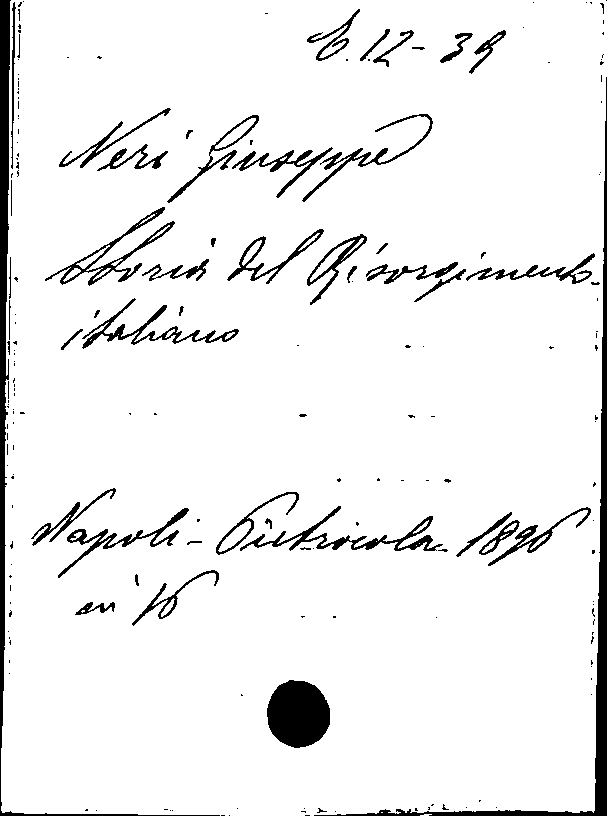 E.12-39
Neri Giuseppe
Storia del Risorgimento
italiano
Napoli - Pietrocola - 1896
in 16